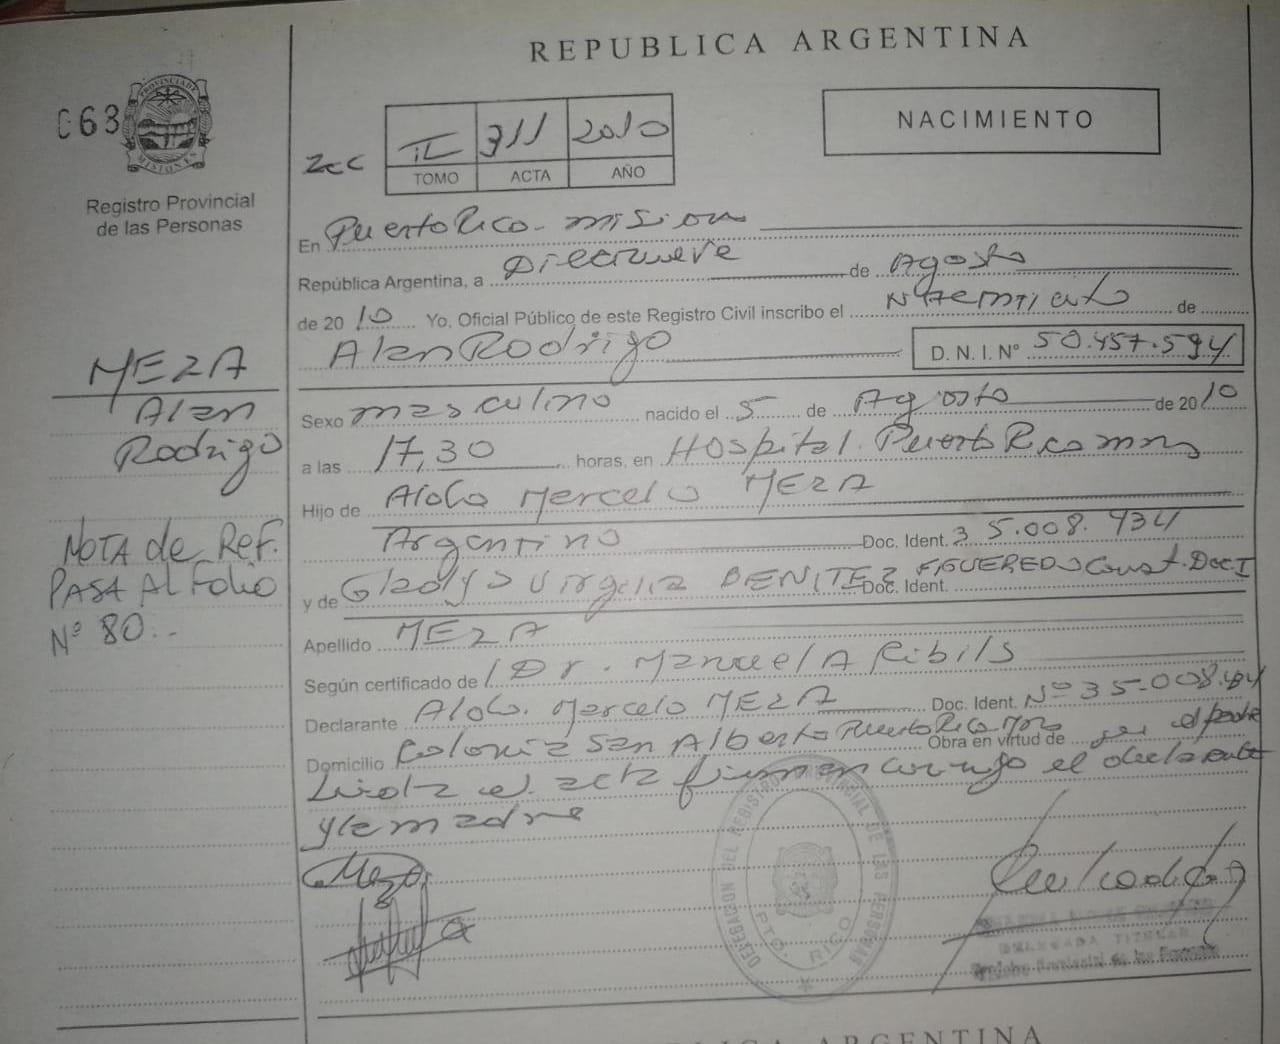 REPUBLICA ARGENTINA
063
PROVINCIA DE
MISIONES
Registro Provincial
de las Personas
NACIMIENTO
II 311 2010
TOMO ACTA AÑO
En Puerto Rico - mision
República Argentina, a Diecinueve de Agosto
de 2010 Yo. Oficial Público de este Registro Civil inscribo el Nacimiento de
Alan Rodrigo D. N. I. Nº 50.457.594
Sexo masculino nacido el 5 de Agosto de 2010
a las 17,30 horas, en Hospital. Puerto Rico
Hijo de Marcelo MEZA
Argentino Doc. Ident. 35.008.434
y de Gladys Virginia BENITEZ FIGUEREDO Const. Doc I
Doc. Ident.
Apellido MEZA
Según certificado de Dr. Manuel A Ribils
Declarante Marcelo MEZA Doc. Ident. Nº 35.008.
Domicilio Colonia San Alberto Puerto Rico Obra en virtud de ser el padre
el acta firman el declarante
y la madre
MEZA
Alan
Rodrigo
NOTA de REF.
PASA AL FOLIO
Nº 80..
Meza
DELEGACION DEL REGISTRO PROVINCIAL DE LAS PERSONAS
PTO. RICO
DELEGADA TITULAR
Registro Provincial de las Personas
REPUBLICA ARGENTINA